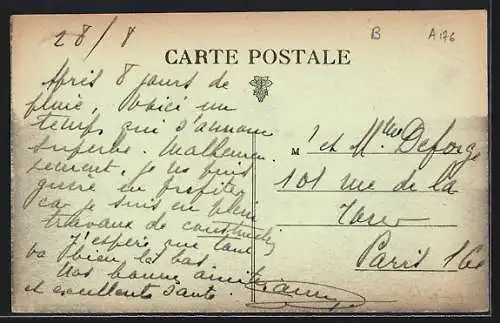 28/8
B
A176
CARTE POSTALE
Après 8 jours de
pluie, voici un
temps qui s'annonce
superbe. Malheureu-
sement, je ne puis
guère en profiter
car je suis en plein
travaux de construction
J'espère que tout
va bien là bas
Nos bonnes amitiés
et excellente santé.
M
et Mlles Deforge
101 rue de la
Tour
Paris 16e